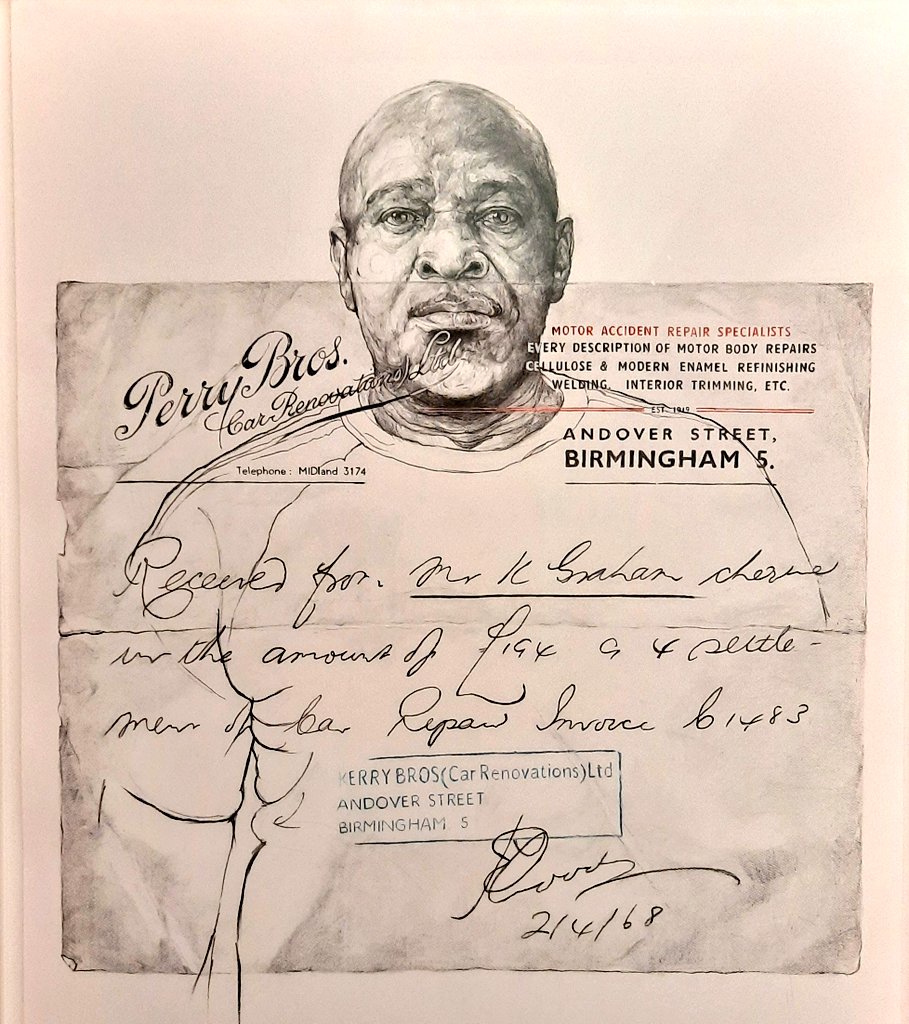 Perry Bros.
Car Renovatians) Ltd.
Telephone: MIDland 3174
MOTOR ACCIDENT REPAIR SPECIALISTS
EVERY DESCRIPTION OF MOTOR BODY REPAIRS
CELLULOSE & MODERN ENAMEL REFINISHING
WELDING. INTERIOR TRIMMING, ETC.
EST. 1919
ANDOVER STREET,
BIRMINGHAM 5.
Received from Mr K Graham cheque
in the amount of £194 9 4 settle-
ment of Car Repair Invoice C1483
KERRY BROS(Car Renovations)Ltd
ANDOVER STREET
BIRMINGHAM 5
2/4/68